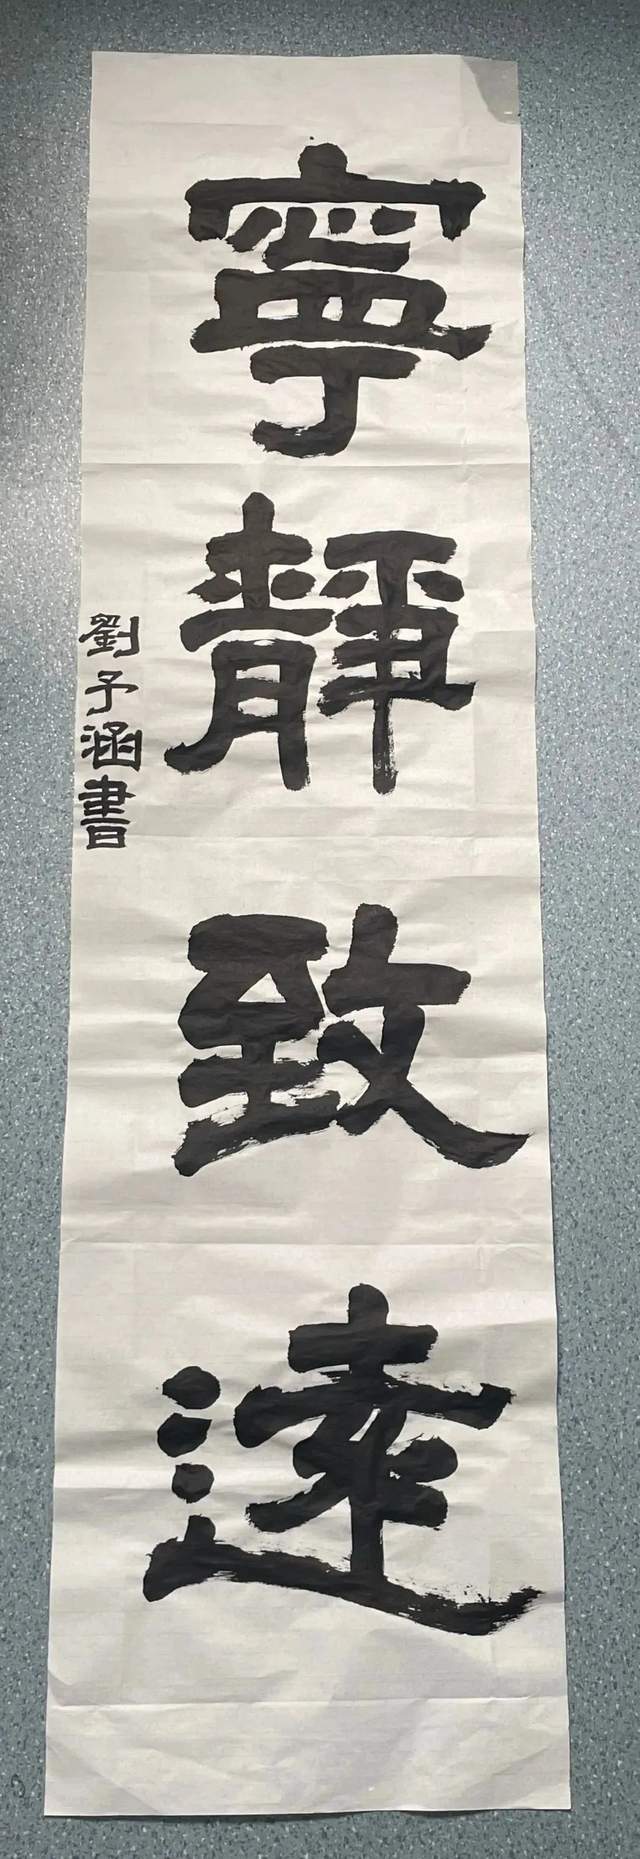 寧靜致遠
劉予涵書